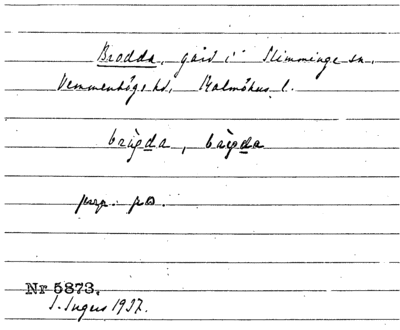 Brodda, gård i Slimminge sn.
Vemmenhögs hd, Malmöhus l.
prep. på.
Nr 5873.
I. Ingers 1937.